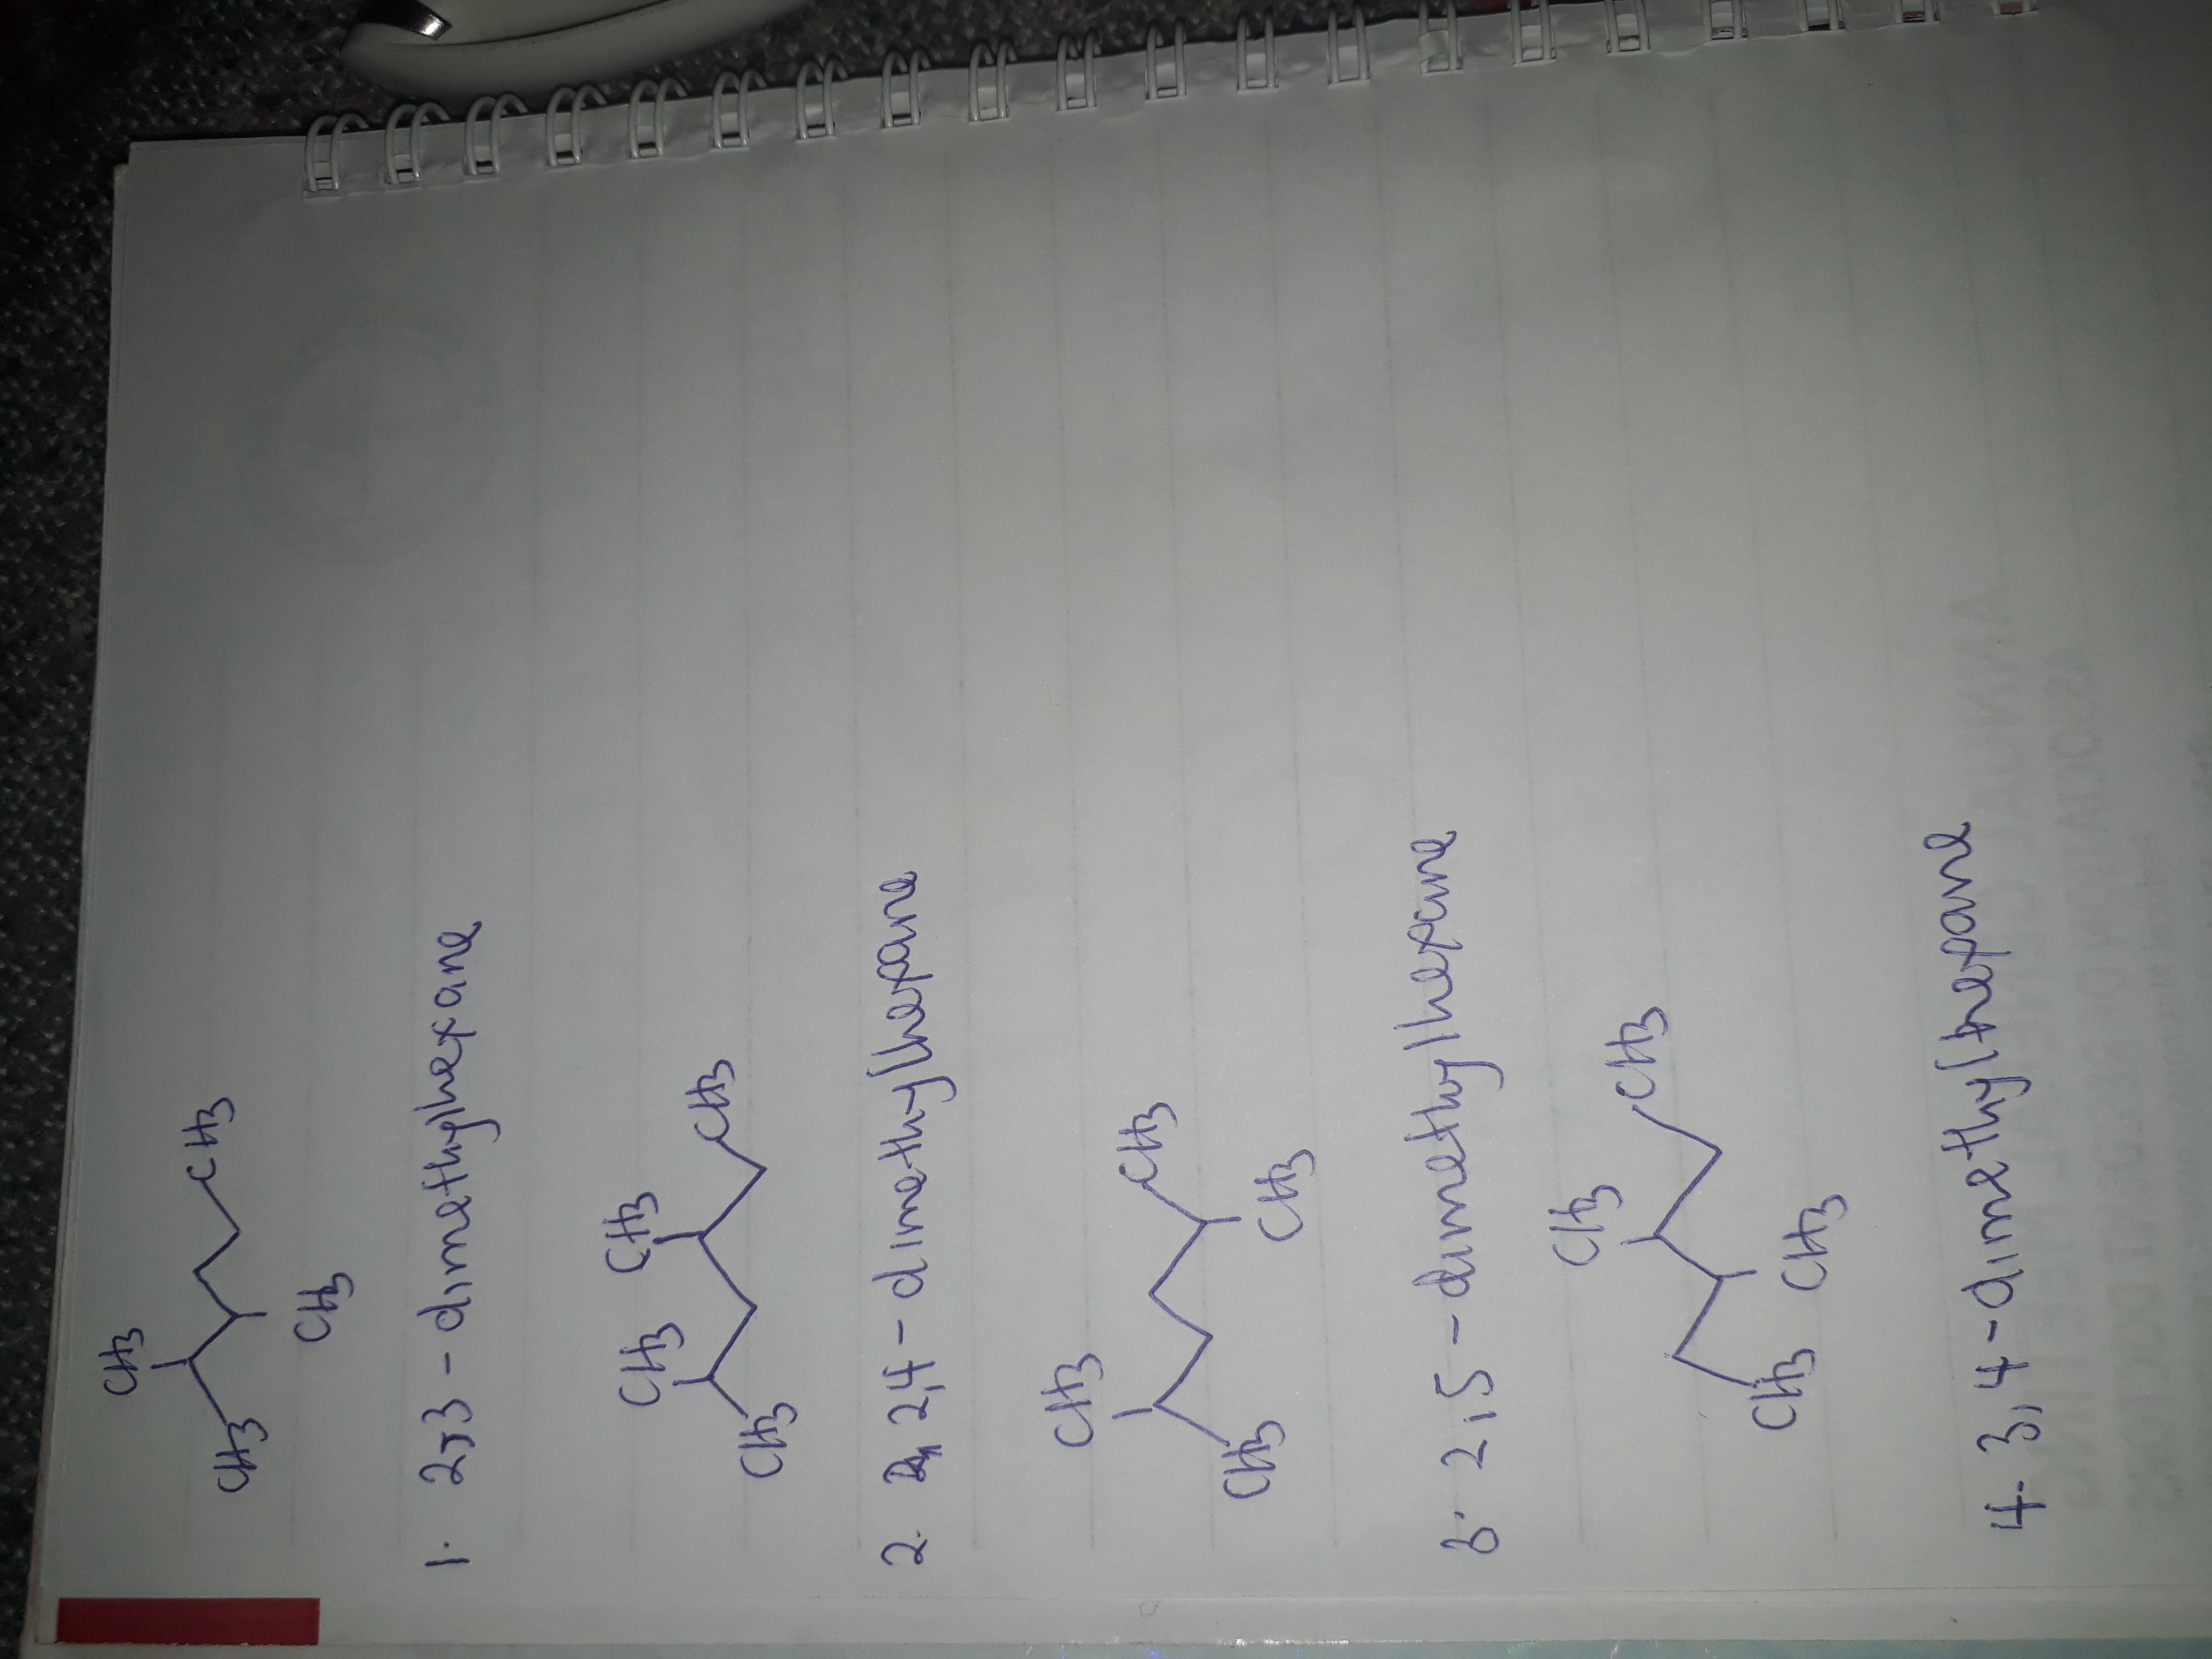 CH3
CH3 CH3
CH3
1. 2,3 - dimethylhexane
CH3 CH3
CH3 CH3
2. 2,4 - dimethylhexane
CH3
CH3 CH3
CH3
3. 2,5 - dimethylhexane
CH3
CH3 CH3
CH3
4. 3,4 - dimethylhexane